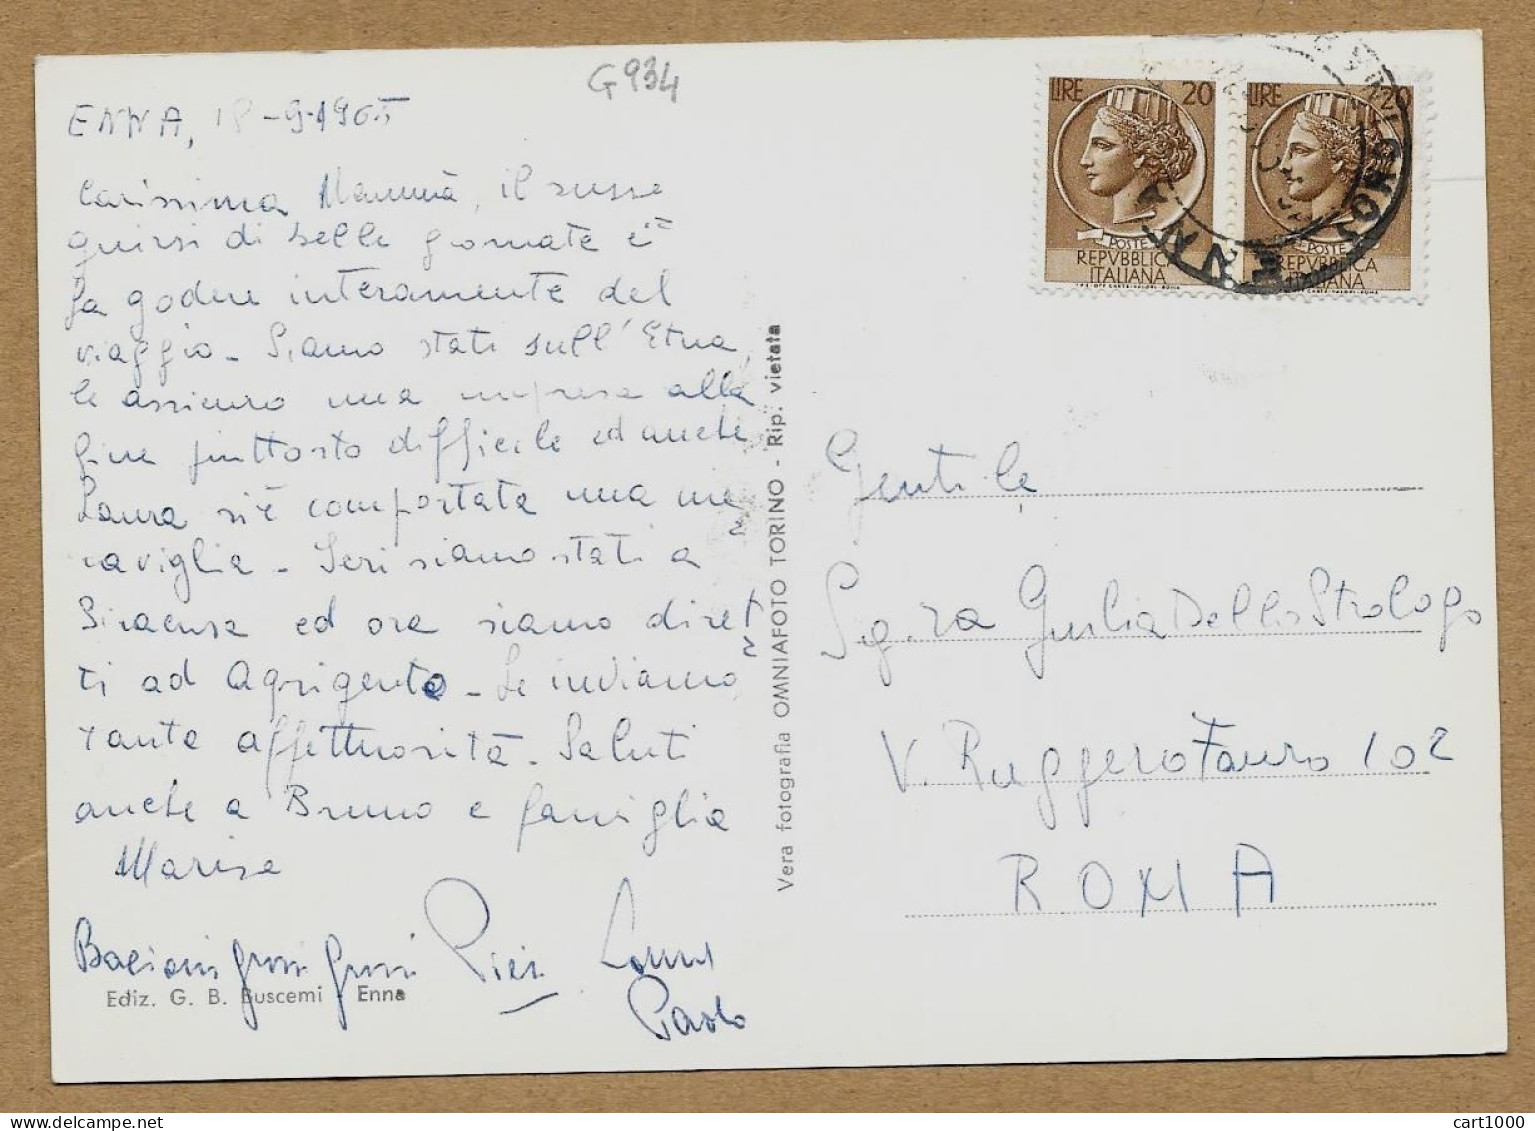 G934
ENNA, 18-9-1965
Carissima Mammà, il susse
guirsi di belle giornate ci
fa godere interamente del
viaggio - Siamo stati sull'Etna,
le assicuro una impresa alla
fine piuttosto difficile ed anche
Laura si è comportata una me
raviglia - Ieri siamo stati a
Siracusa ed ora siamo diret
ti ad Agrigento - Le inviamo
tante affettuosità - Saluti
anche a Bruno e famiglia
Marisa
Bacioni grossi grossi Laura
Paolo
Ediz. G. B. Buscemi - Enna
Vera fotografia OMNIAFOTO TORINO - Rip. vietata
LIRE 20
POSTE
REPVBBLICA
ITALIANA
LIRE 20
POSTE
REPVBBLICA
ITALIANA
ENNA
Gentile
Sig.ra Giulia Della Strologo
V. Ruggero Fauro 102
ROMA
cart1000